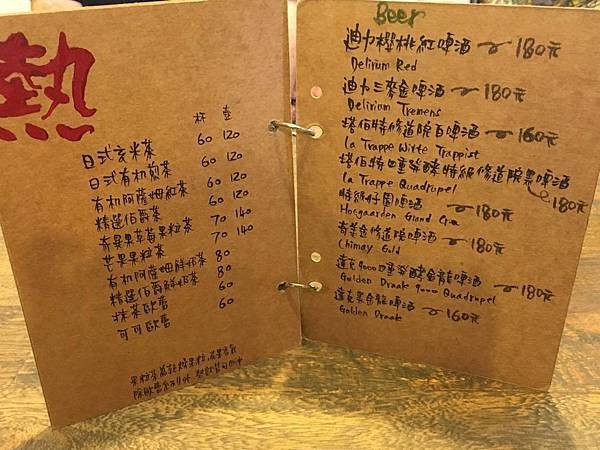 熱
杯 壺
日式玄米茶 60 120
日式有机煎茶 60 120
有机阿薩姆紅茶 60 120
精選伯爵茶 60 120
奇異果草莓果粒茶 70 140
芒果果粒茶 70 140
有机阿薩姆鮮奶茶 80
精選伯爵鮮奶茶 80
抹茶歐蕾 60
可可歐蕾 60
Beer
迪力櫻桃紅啤酒 180元
Delirium Red
迪力三麥金啤酒 180元
Delirium Tremens
塔伯特修道院白啤酒 160元
la Trappe Witte Trappist
塔伯特四重發酵特級修道院黑啤酒
la Trappe Quadrupel 180元
特級仔園啤酒 180元
Hoegaarden Grand Cru
奇美金修道院啤酒 180元
Chimay Gold
達克9000四重發酵金龍啤酒 180元
Gulden Draak 9000 Quadrupel
達克黑金龍啤酒 160元
Golden Draak